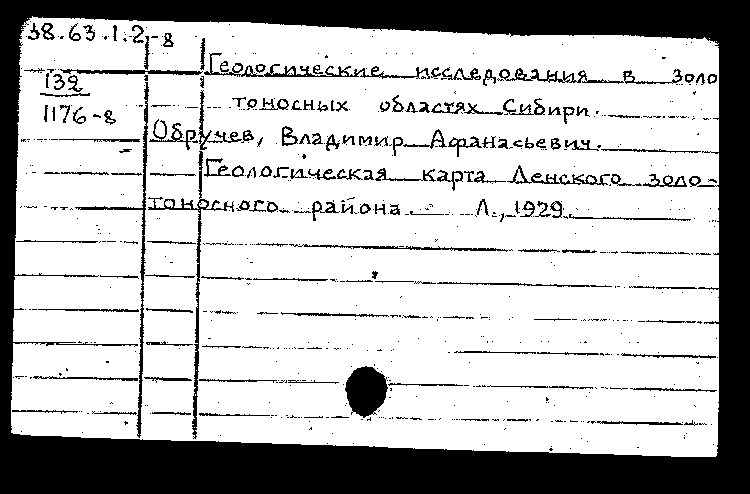 38.63.1.2-8
Геологические исследования в золо
132
1176-8
тоносных областях Сибири.
Обручев, Владимир Афанасьевич.
Геологическая карта Ленского золо-
тоносного района. Л., 1929.